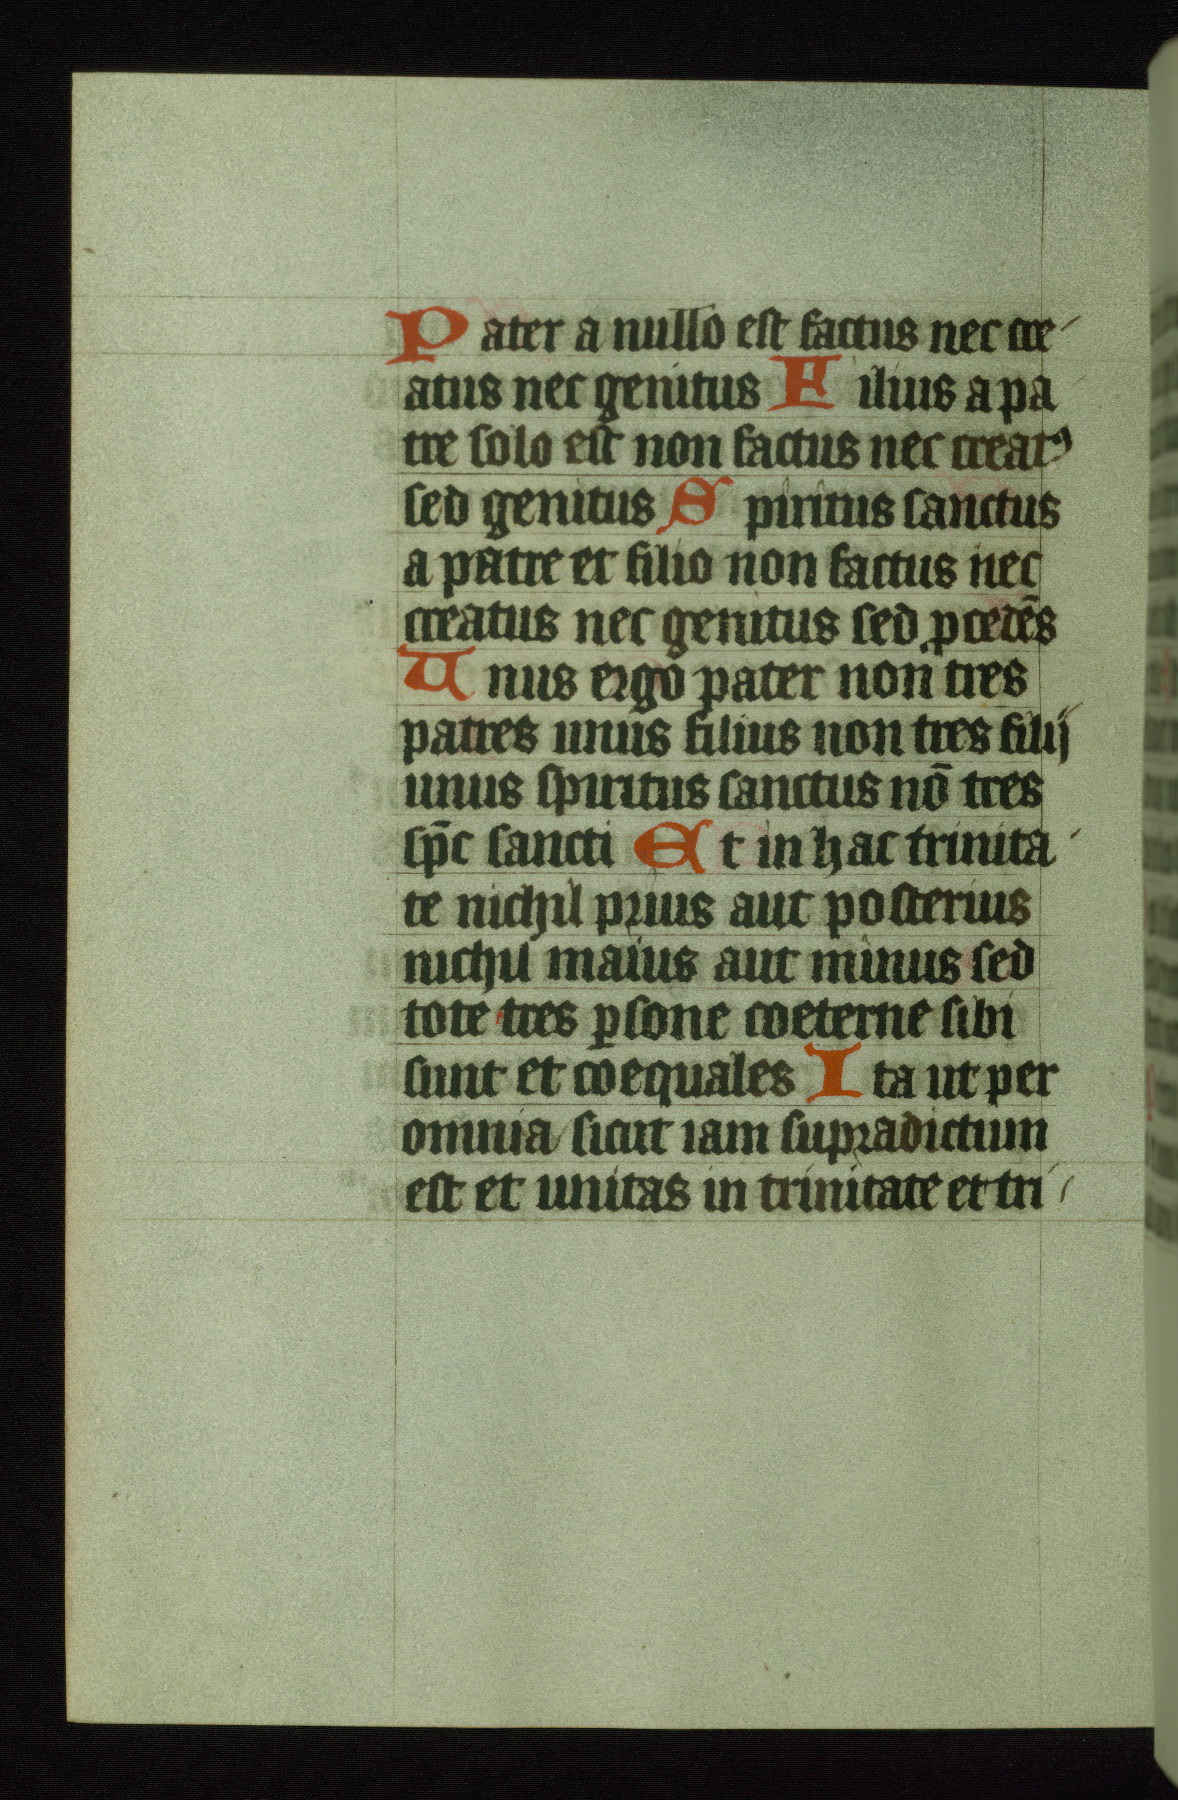 Pater a nullo est factus nec cre
atus nec genitus Filius a pa
tre solo est non factus nec creatꝰ
sed genitus Spiritus sanctus
a patre et filio non factus nec
creatus nec genitus sed ꝓcedēs
Unus ergo pater non tres
patres unus filius non tres filij
unus spiritus sanctus nō tres
sp̄c sancti Et in hac trinita
te nichil prius aut posterius
nichil maius aut minus sed
tote tres ꝑsone coeterne sibi
sunt et coequales Ita ut per
omnia sicut iam supradictum
est et unitas in trinitate et tri